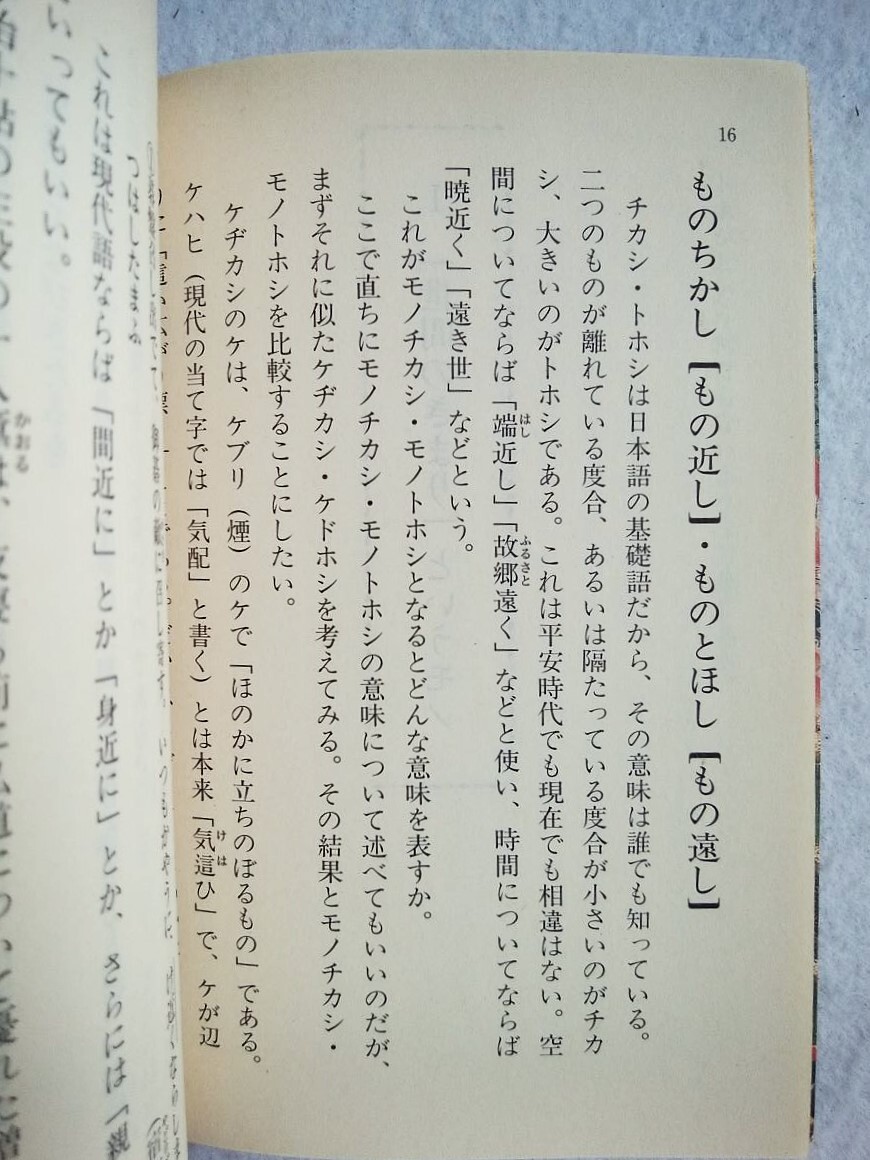 16
ものちかし【もの近し】・ものとほし【もの遠し】
チカシ・トホシは日本語の基礎語だから、その意味は誰でも知っている。
二つのものが離れている度合、あるいは隔たっている度合が小さいのがチカ
シ、大きいのがトホシである。これは平安時代でも現在でも相違はない。空
間についてならば「端近し」「故郷遠く」などと使い、時間についてならば
はし
ふるさと
「暁近く」「遠き世」などという。
これがモノチカシ・モノトホシとなるとどんな意味を表すか。
ここで直ちにモノチカシ・モノトホシの意味について述べてもいいのだが、
まずそれに似たケヂカシ・ケドホシを考えてみる。その結果とモノチカシ・
モノトホシを比較することにしたい。
ケヂカシのケは、ケブリ（煙）のケで「ほのかに立ちのぼるもの」である。
ケハヒ（現代の当て字では「気配」と書く）とは本来「気這ひ」で、ケが辺
けは
つはしたまふ
これは現代語ならば「間近に」とか「身近に」とか、さらには「親
いってもいい。
かおる